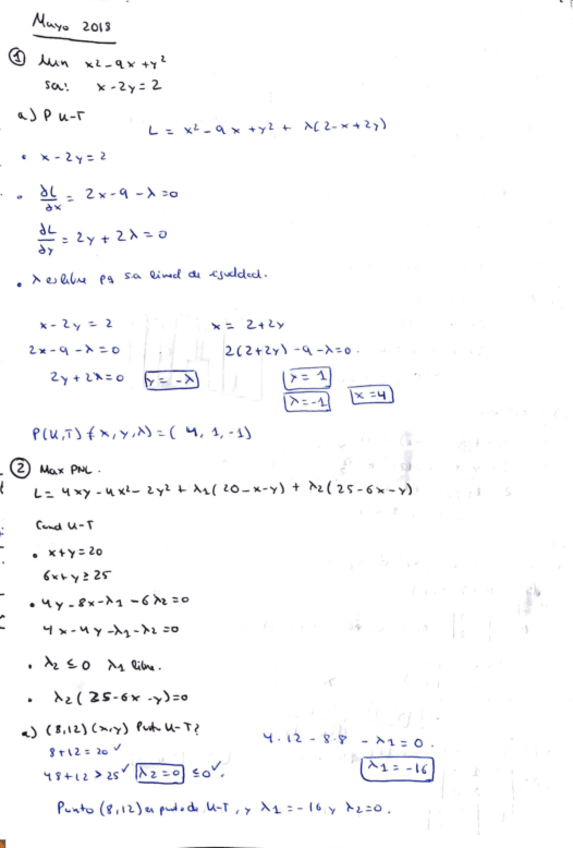 Mayo 2018
① Min x2-9x+y2
sa: x-2y=2
a) P K-T
L = x2-9x+y2+ λ(2-x+2y)
• x-2y=2
• ∂L/∂x = 2x-9-λ=0
∂L/∂y = 2y+2λ=0
• λ es libre pq sa lineal de igualdad.
x-2y=2 x= 2+2y
2x-9-λ=0 2(2+2y)-9-λ=0.
2y+2λ=0 y=-λ y=1
λ=-1 x=4
P(K,T) (x,y,λ)=(4,1,-1)
② Max PNL.
L= 4xy-4x2-2y2+λ1(20-x-y)+λ2(25-6x-y)
Cond K-T
• x+y=20
6x+y≥25
• 4y-8x-λ1-6λ2=0
4x-4y-λ1-λ2=0
• λ2≤0 λ1 libre.
• λ2(25-6x-y)=0
a) (8,12)(x,y) Punto K-T? 4·12-8·8-λ1=0.
8+12=20✓
48+12>25✓ λ2=0 ≤0✓. λ1=-16
Punto (8,12) es punto de K-T, y λ1=-16 y λ2=0.